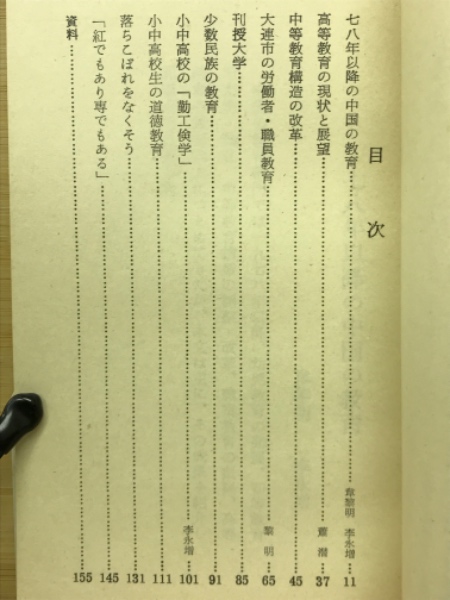 目次
七八年以降の中国の教育……韋黎明 李永増……11
高等教育の現状と展望……37
中等教育構造の改革……45
大連市の労働者・職員教育……黎明……65
刊授大学……85
少数民族の教育……91
小中高校の「勤工倹学」……李永増……101
小中高校生の道徳教育……111
落ちこぼれをなくそう……131
「紅でもあり専でもある」……145
資料……155